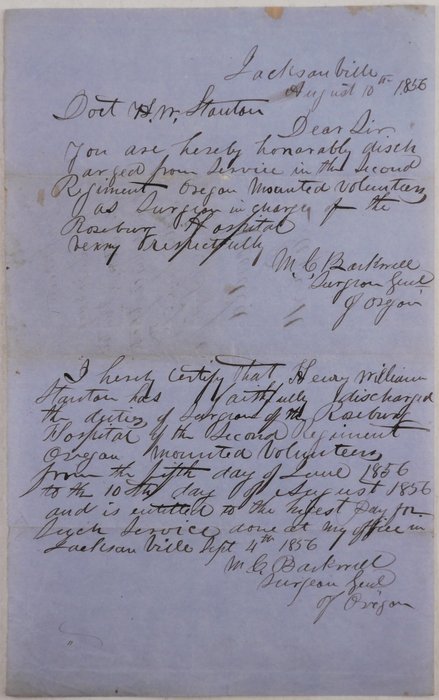 Jacksonville
August 10th 1856
Doct H. W. Stanton
Dear Sir
You are hereby honorably disch
arged from Service in the Second
Regiment Oregon Mounted Volunteers
as Surgeon in charge of the
Roseburg Hospital
very respectfully
M. C. Barkwell
Surgeon Genl
of Oregon
I hereby certify that Henry William
Stanton has faithfully discharged
the duties of Surgeon of the Roseburg
Hospital of the Second Regiment
Oregon Mounted Volunteers
from the fifth day of June 1856
to the 10th day of August 1856
and is entitled to the highest Pay for
Such Service done at my office in
Jacksonville Sept 4th 1856
M. C. Barkwell
Surgeon Genl
of Oregon